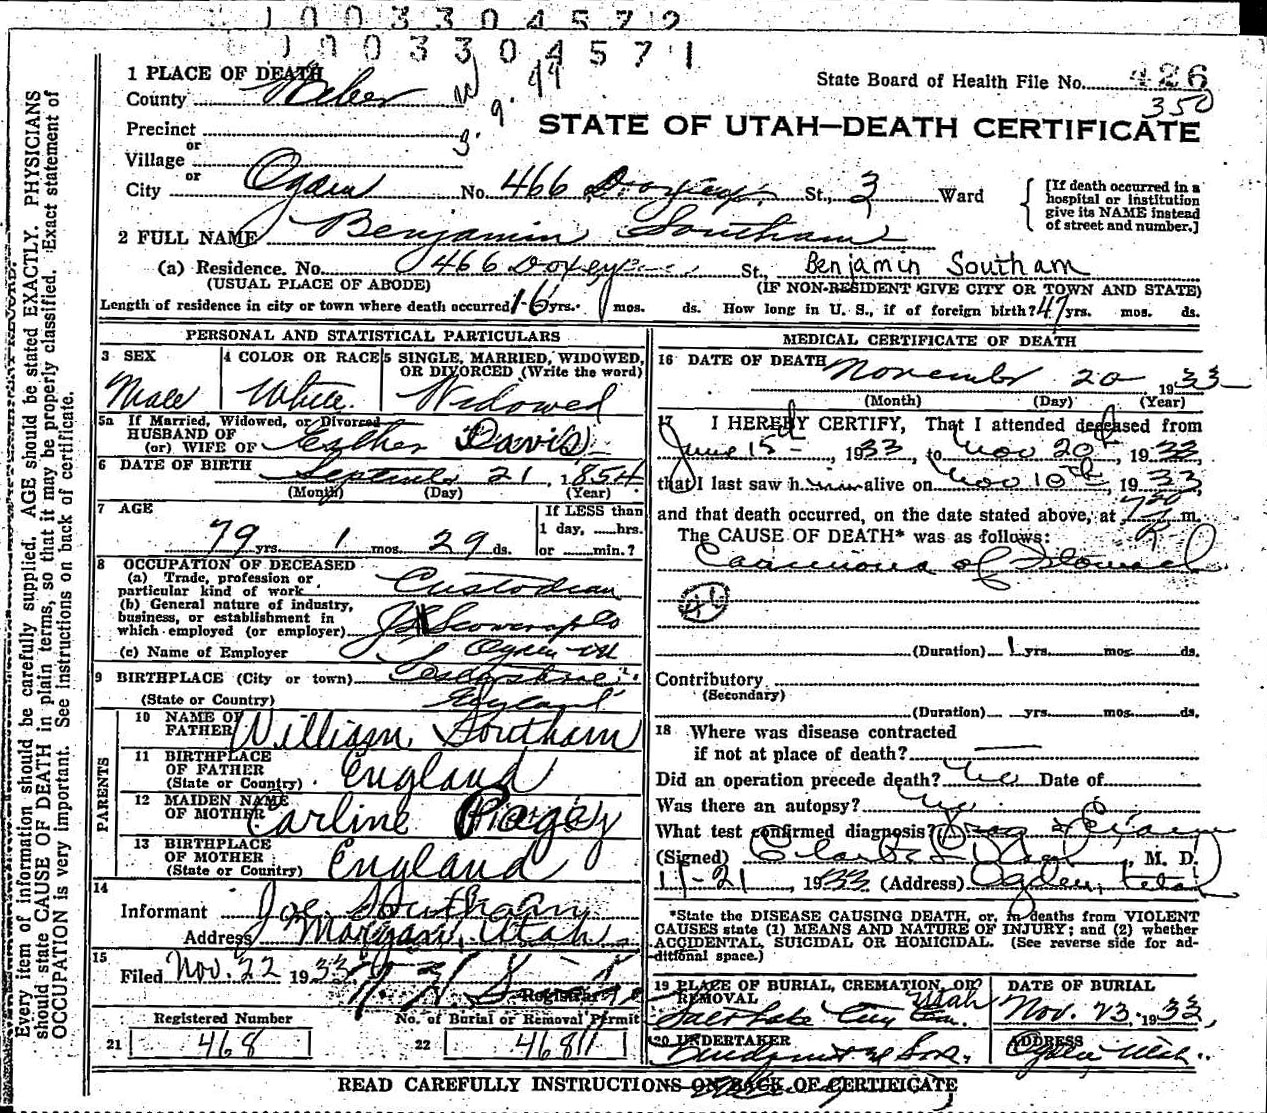 1003304572
1003304571
1 PLACE OF DEATH
State Board of Health File No. 426
County Weber
350
STATE OF UTAH—DEATH CERTIFICATE
Precinct
or
Village
or
City Ogden No. 466 Doxey St., 3 Ward
[If death occurred in a hospital or institution give its NAME instead of street and number.]
2 FULL NAME Benjamin Southam
(a) Residence. No. 466 Doxey St., Benjamin Southam
(USUAL PLACE OF ABODE) (IF NON-RESIDENT GIVE CITY OR TOWN AND STATE)
Length of residence in city or town where death occurred 16 yrs. mos. ds. How long in U. S., if of foreign birth? 47 yrs. mos. ds.
PERSONAL AND STATISTICAL PARTICULARS
3 SEX 4 COLOR OR RACE 5 SINGLE, MARRIED, WIDOWED, OR DIVORCED (Write the word)
Male White Widowed
5a If Married, Widowed, or Divorced
HUSBAND OF
(or) WIFE OF Esther Davis
6 DATE OF BIRTH September 21, 1854
(Month) (Day) (Year)
7 AGE If LESS than
1 day, hrs.
79 yrs. 1 mos. 29 ds. or min.?
8 OCCUPATION OF DECEASED
(a) Trade, profession or
particular kind of work Custodian
(b) General nature of industry,
business, or establishment in
which employed (or employer)
(c) Name of Employer Ogden
9 BIRTHPLACE (City or town)
(State or Country) England
PARENTS
10 NAME OF FATHER William Southam
11 BIRTHPLACE OF FATHER
(State or Country) England
12 MAIDEN NAME OF MOTHER Carline
13 BIRTHPLACE OF MOTHER
(State or Country) England
14
Informant Joe Southam
Address Morgan, Utah
15
Filed Nov. 22 1933
Registrar
Registered Number No. of Burial or Removal Permit
21 468 22 468
MEDICAL CERTIFICATE OF DEATH
16 DATE OF DEATH November 20 1933
(Month) (Day) (Year)
17 I HEREBY CERTIFY, That I attended deceased from
June 15, 1933, to Nov 20, 1933
that I last saw h im alive on Nov 10th, 1933
and that death occurred, on the date stated above, at 7 30 m.
The CAUSE OF DEATH* was as follows:
Carcinoma of Stomach
(Duration) 1 yrs. mos. ds.
Contributory
(Secondary)
(Duration) yrs. mos. ds.
18 Where was disease contracted
if not at place of death?
Did an operation precede death? No Date of
Was there an autopsy? No
What test confirmed diagnosis?
(Signed) M. D.
11-21, 1933 (Address) Ogden, Utah
*State the DISEASE CAUSING DEATH, or, in deaths from VIOLENT
CAUSES state (1) MEANS AND NATURE OF INJURY; and (2) whether
ACCIDENTAL, SUICIDAL OR HOMICIDAL. (See reverse side for additional space.)
19 PLACE OF BURIAL, CREMATION, OR REMOVAL DATE OF BURIAL
Salt Lake City Cem. Utah Nov. 23, 1933,
20 UNDERTAKER ADDRESS
& Son. Ogden Utah
READ CAREFULLY INSTRUCTIONS ON BACK OF CERTIFICATE
Every item of information should be carefully supplied. AGE should be stated EXACTLY. PHYSICIANS
should state CAUSE OF DEATH in plain terms, so that it may be properly classified. Exact statement of
OCCUPATION is very important. See instructions on back of certificate.